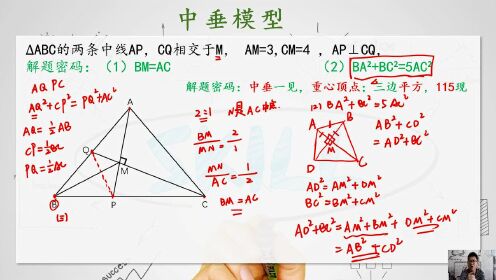 中垂模型
ΔABC的两条中线AP，CQ相交于M，  AM=3,CM=4 ，AP⊥CQ，
解题密码：（1）BM=AC        （2）BA²+BC²=5AC²
解题密码：中垂一见，重心顶点；三边平方，115现
AQ PC
AQ²+CP²=PQ²+AC²
AQ=½AB
CP=½BC
PQ=½AC
A
Q
M
B
P
C
(5)
2=1
BM/MN=2/1
MN/AC=1/2
BM=AC
(2) BA²+BC²=5AC²
A
B
M
D
C
AB²+CD²
=AD²+BC²
AD²=AM²+DM²
BC²=BM²+CM²
AD²+BC²=AM²+BM²+DM²+CM²
=AB²+CD²